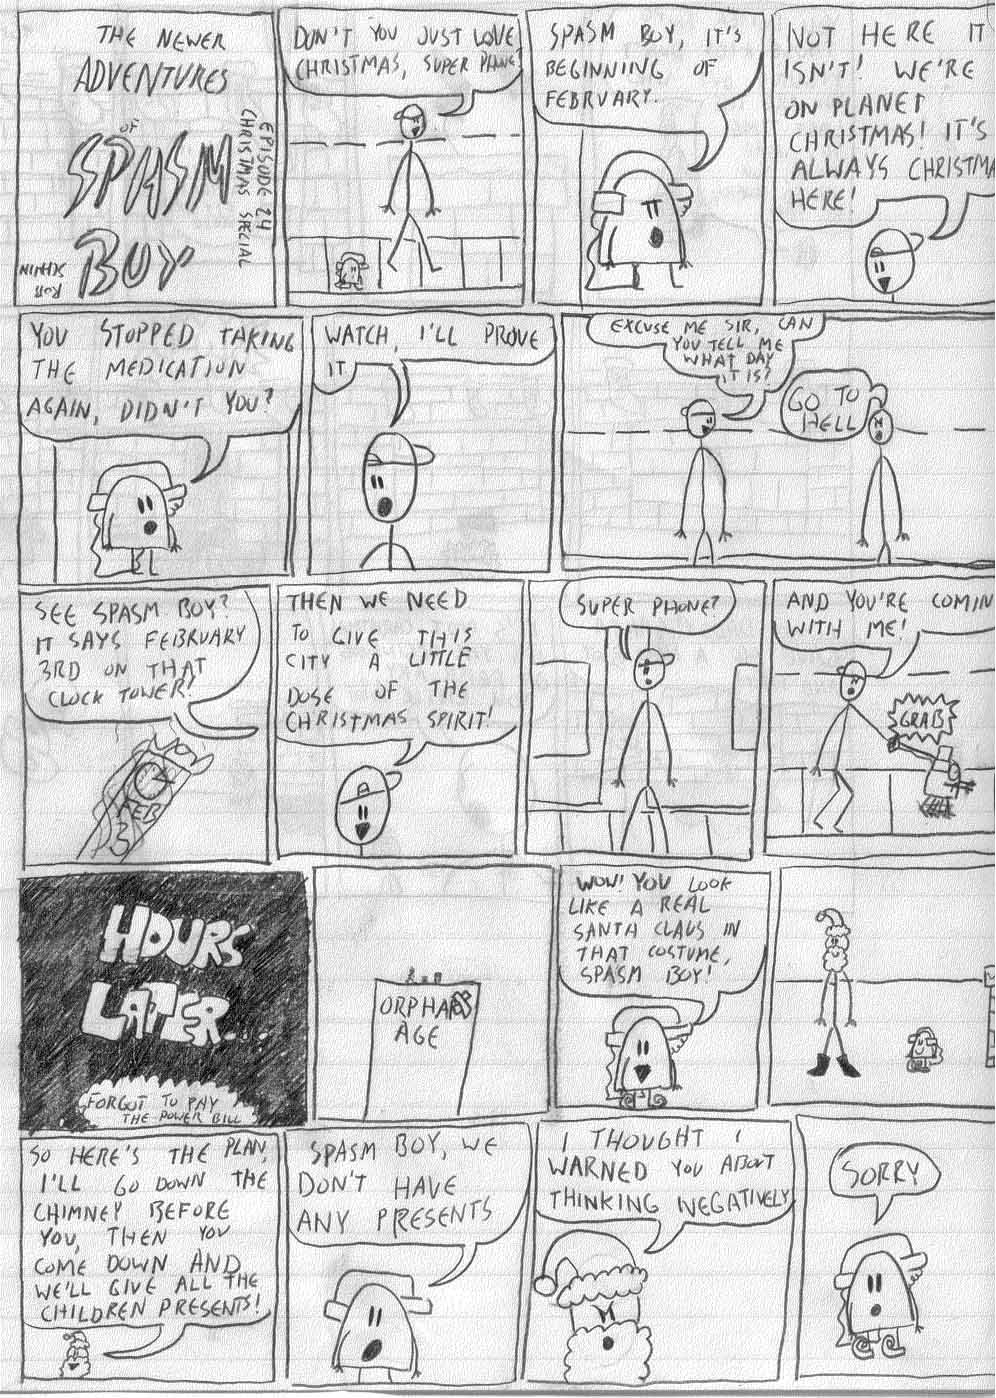 THE NEWER
ADVENTURES
OF
SPASM
BOY
EPISODE 24
CHRISTMAS SPECIAL
DON'T YOU JUST LOVE
CHRISTMAS, SUPER PHONE?
SPASM BOY, IT'S
BEGINNING OF
FEBRUARY.
NOT HERE IT
ISN'T! WE'RE
ON PLANET
CHRISTMAS! IT'S
ALWAYS CHRISTMA
HERE!
YOU STOPPED TAKING
THE MEDICATION
AGAIN, DIDN'T YOU?
WATCH, I'LL PROVE
IT
EXCUSE ME SIR, CAN
YOU TELL ME
WHAT DAY
IT IS?
GO TO
HELL
SEE SPASM BOY?
IT SAYS FEBRUARY
3RD ON THAT
CLOCK TOWER!
FEB
3
THEN WE NEED
TO GIVE THIS
CITY A LITTLE
DOSE OF THE
CHRISTMAS SPIRIT!
SUPER PHONE?
AND YOU'RE COMIN
WITH ME!
GRAB
HOURS
LATER...
FORGOT TO PAY
THE POWER BILL
ORPHAN
AGE
WOW! YOU LOOK
LIKE A REAL
SANTA CLAUS IN
THAT COSTUME,
SPASM BOY!
SO HERE'S THE PLAN,
I'LL GO DOWN THE
CHIMNEY BEFORE
YOU, THEN YOU
COME DOWN AND
WE'LL GIVE ALL THE
CHILDREN PRESENTS!
SPASM BOY, WE
DON'T HAVE
ANY PRESENTS
I THOUGHT I
WARNED YOU ABOUT
THINKING NEGATIVELY
SORRY